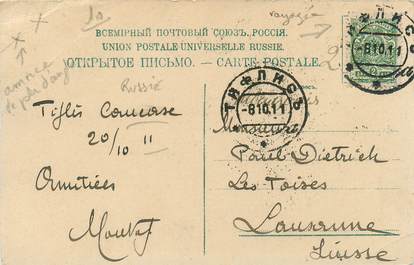 1a
voyagée
ВСЕМІРНЫЙ ПОЧТОВЫЙ СОЮЗЪ, РОССІЯ.
UNION POSTALE UNIVERSELLE RUSSIE.
ОТКРЫТОЕ ПИСЬМО. — CARTE POSTALE.
ТИФЛИСЪ
-8 10.11
ТИФЛИСЪ
-8 10.11
Russie
Tiflis Caucase
20/10 11
Amitiées
Monsieur
Paul Dietrich
Les Toises
Lausanne
Suisse